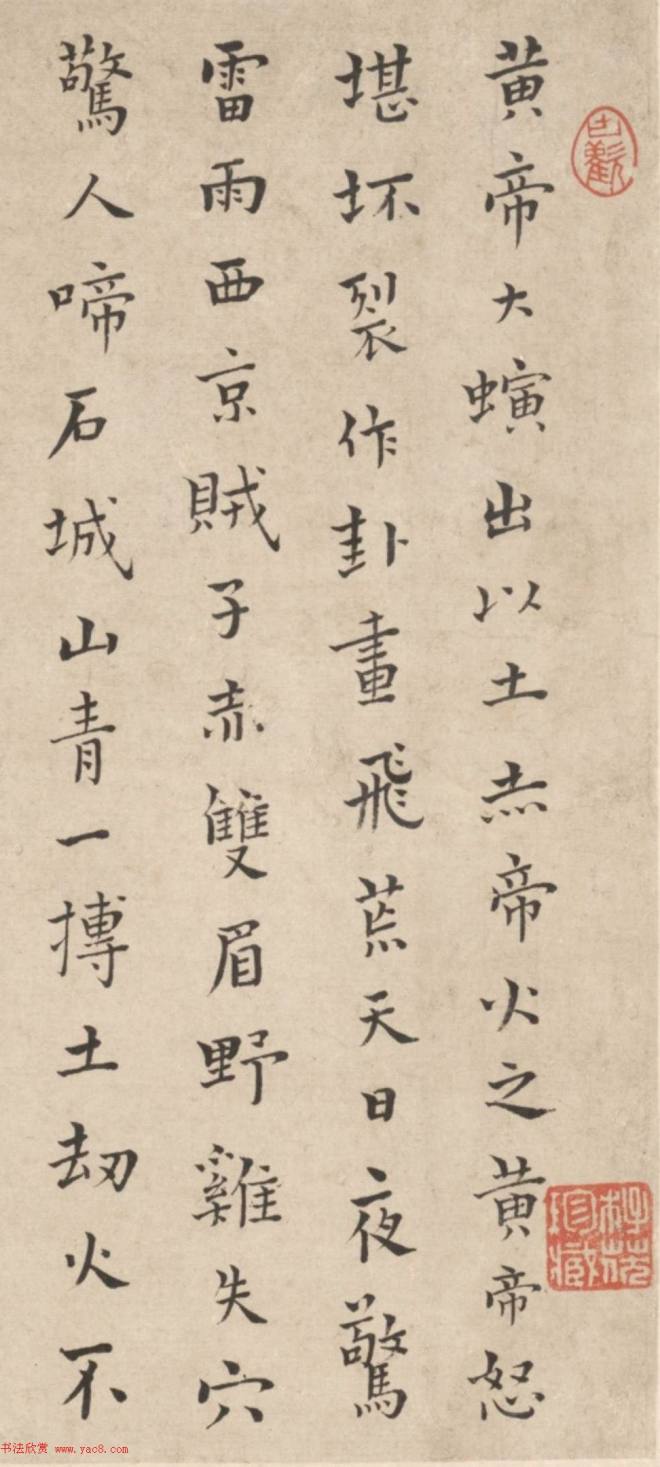 黄帝大螾出以土赤帝火之黄帝怒
堪坏裂作卦畫飛荒天日夜驚
雷雨西京賊子赤雙眉野雞失穴
驚人啼石城山青一摶土刧火不
書法欣赏 www.yac8.com